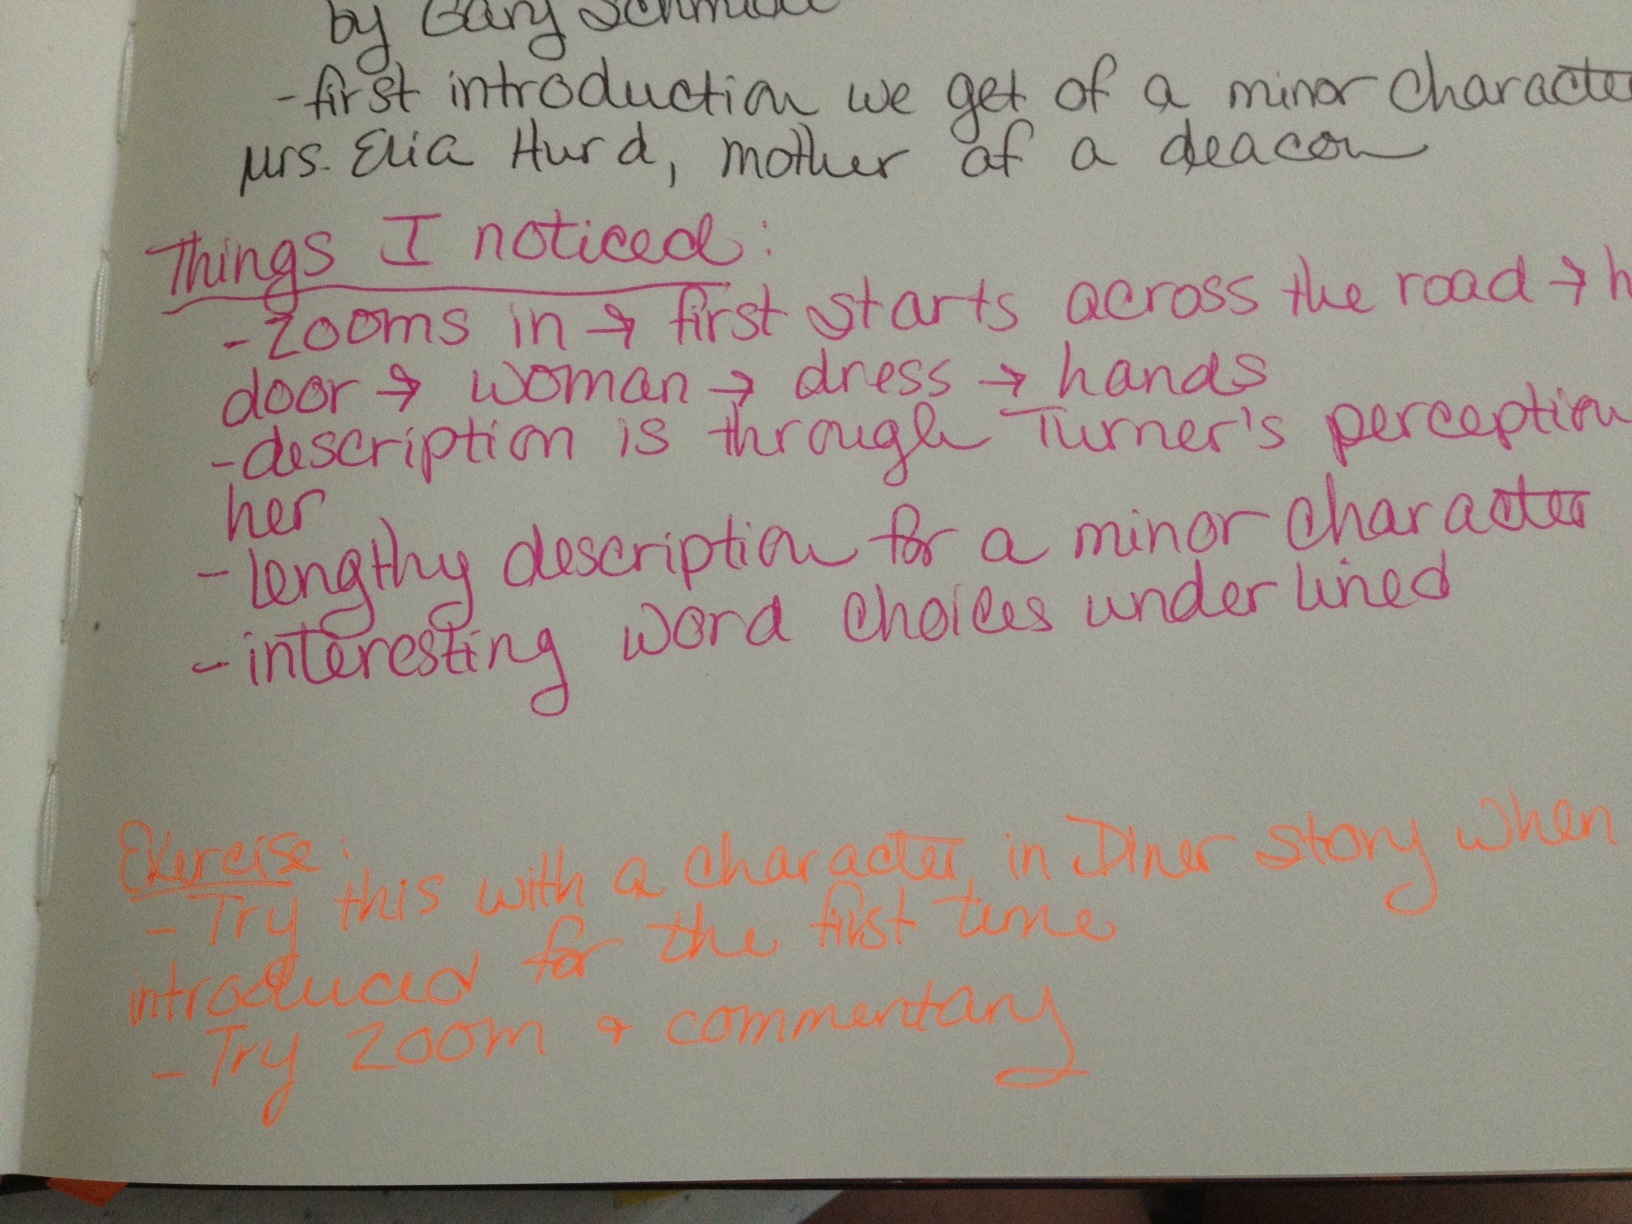 by Gary Schmidt
-first introduction we get of a minor character
Mrs. Elia Hurd, mother of a deacon
Things I noticed:
-zooms in → first starts across the road → h
door → woman → dress → hands
-description is through Turner's perception
her
-lengthy description for a minor character
-interesting word choices underlined
Exercise:
-Try this with a character in Diner story when
introduced for the first time
-Try zoom & commentary